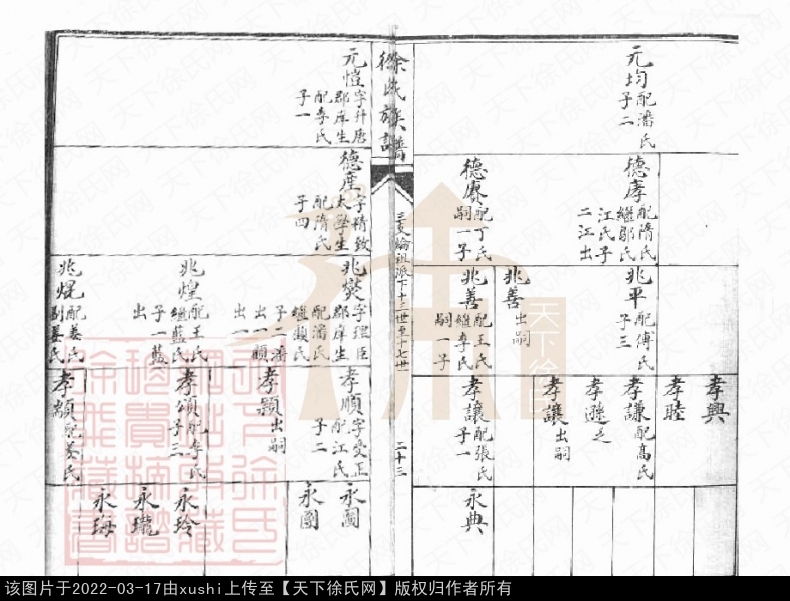 元均 配潘氏
子二
德孝 配隋氏
繼鄔氏
江氏子
二江出
德賡 配丁氏
嗣一子
兆平 配傅氏
子三
兆善 出嗣
兆善 配王氏
繼李氏
嗣一子
孝興
孝睦
孝謙 配高氏
孝遜 乏
孝讓 出嗣
孝讓 配張氏
子一
永典
徐氏族譜
三支綸祖派下十三世至十七世
二十三
元愷 字升唐
郡庠生
配李氏
子一
德產 字精致
太學生
配隋氏
子四
兆熒 字理臣
郡庠生
配潘氏
繼顏氏
子二潘
出一顏
出一
兆煌 配王氏
繼藍氏
子一藍
出
兆焜 配姜氏
副姜氏
孝順 字受正
配江氏
子二
孝顥 出嗣
孝頌 配李氏
子三
孝顏 配姜氏
永圖
永團
永玲
永瓏
永海
天下徐氏
该图片于2022-03-17由xushi上传至【天下徐氏网】版权归作者所有